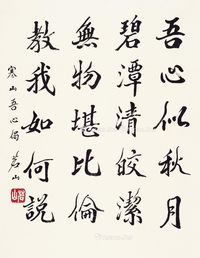 吾心似秋月
碧潭清皎潔
無物堪比倫
教我如何說
寒山吾心偈 茗山